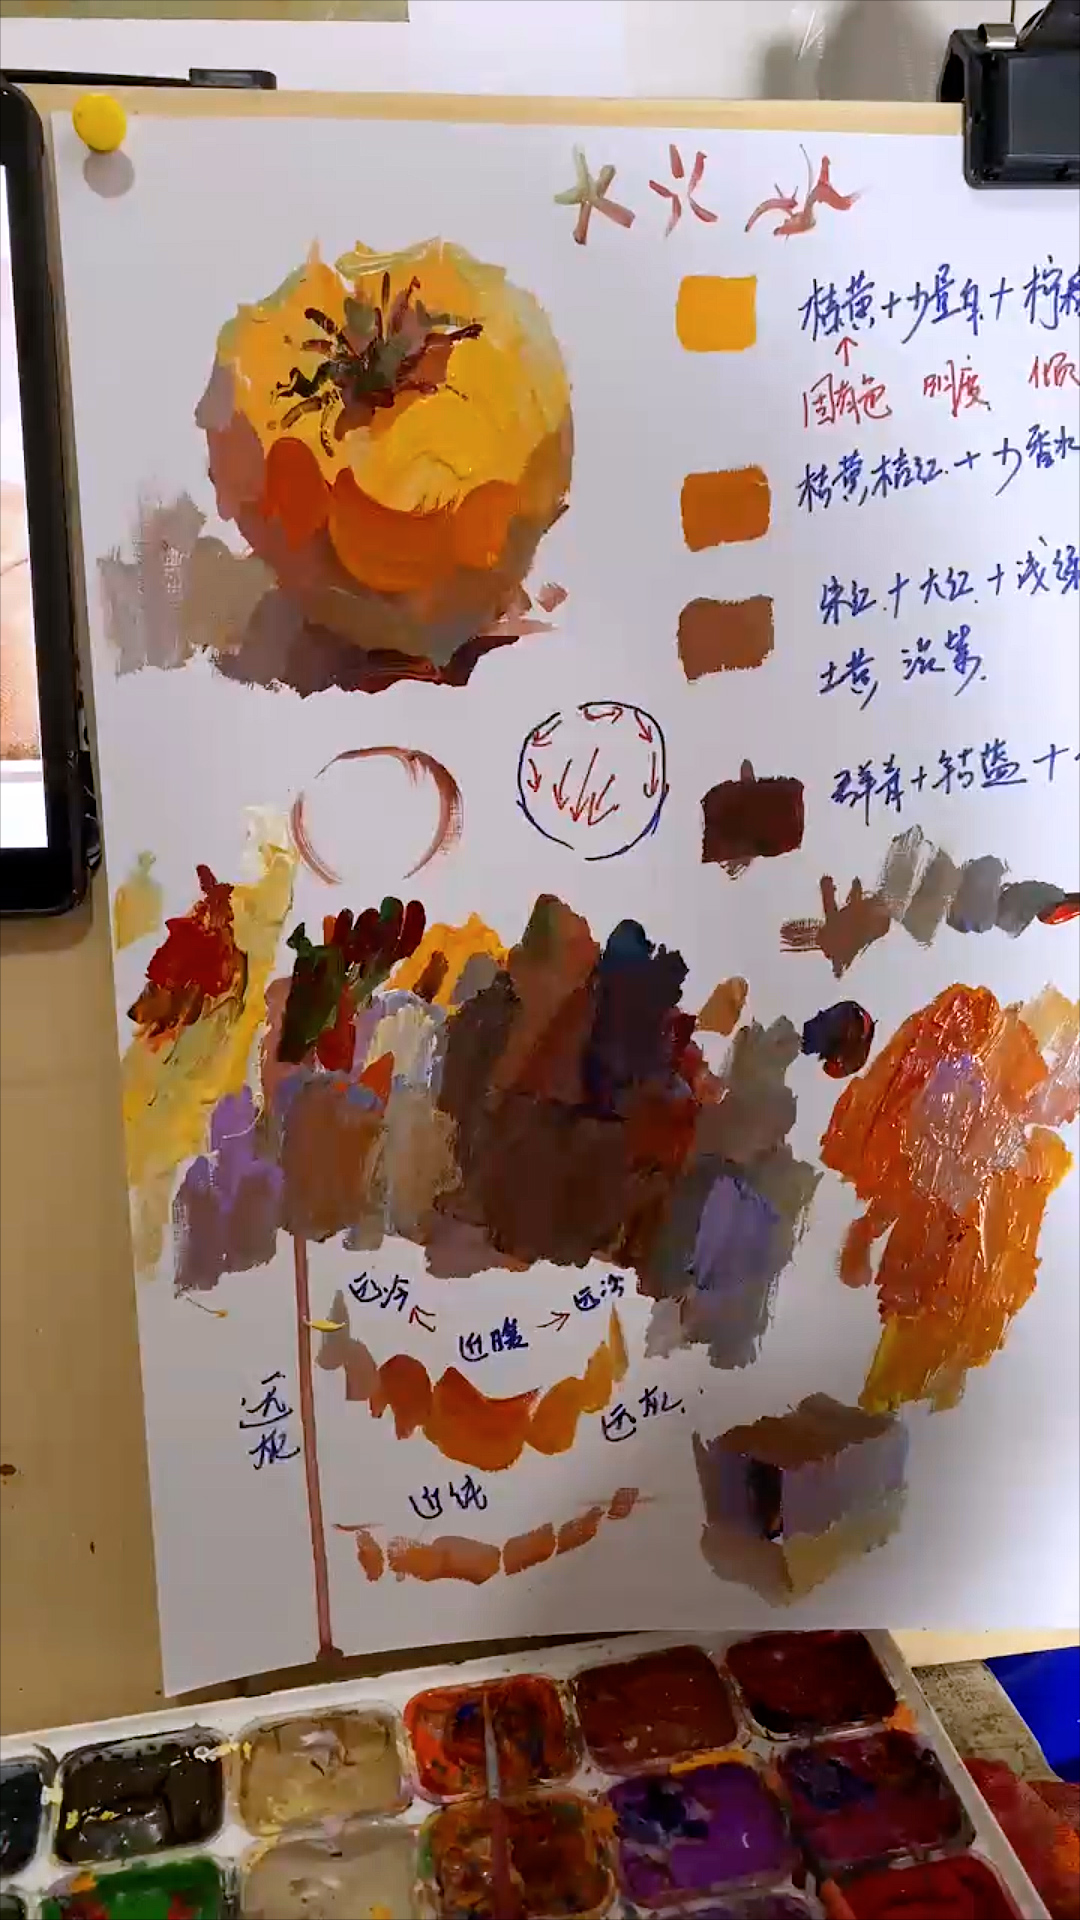 桔黄+少量白+柠
固有色 明度 倾
桔黄,桔红.+少
朱红.+大红.+浅绿
土黄, 混紫.
群青+钴蓝+
远冷
远冷
近暖
远灰
远灰.
近纯